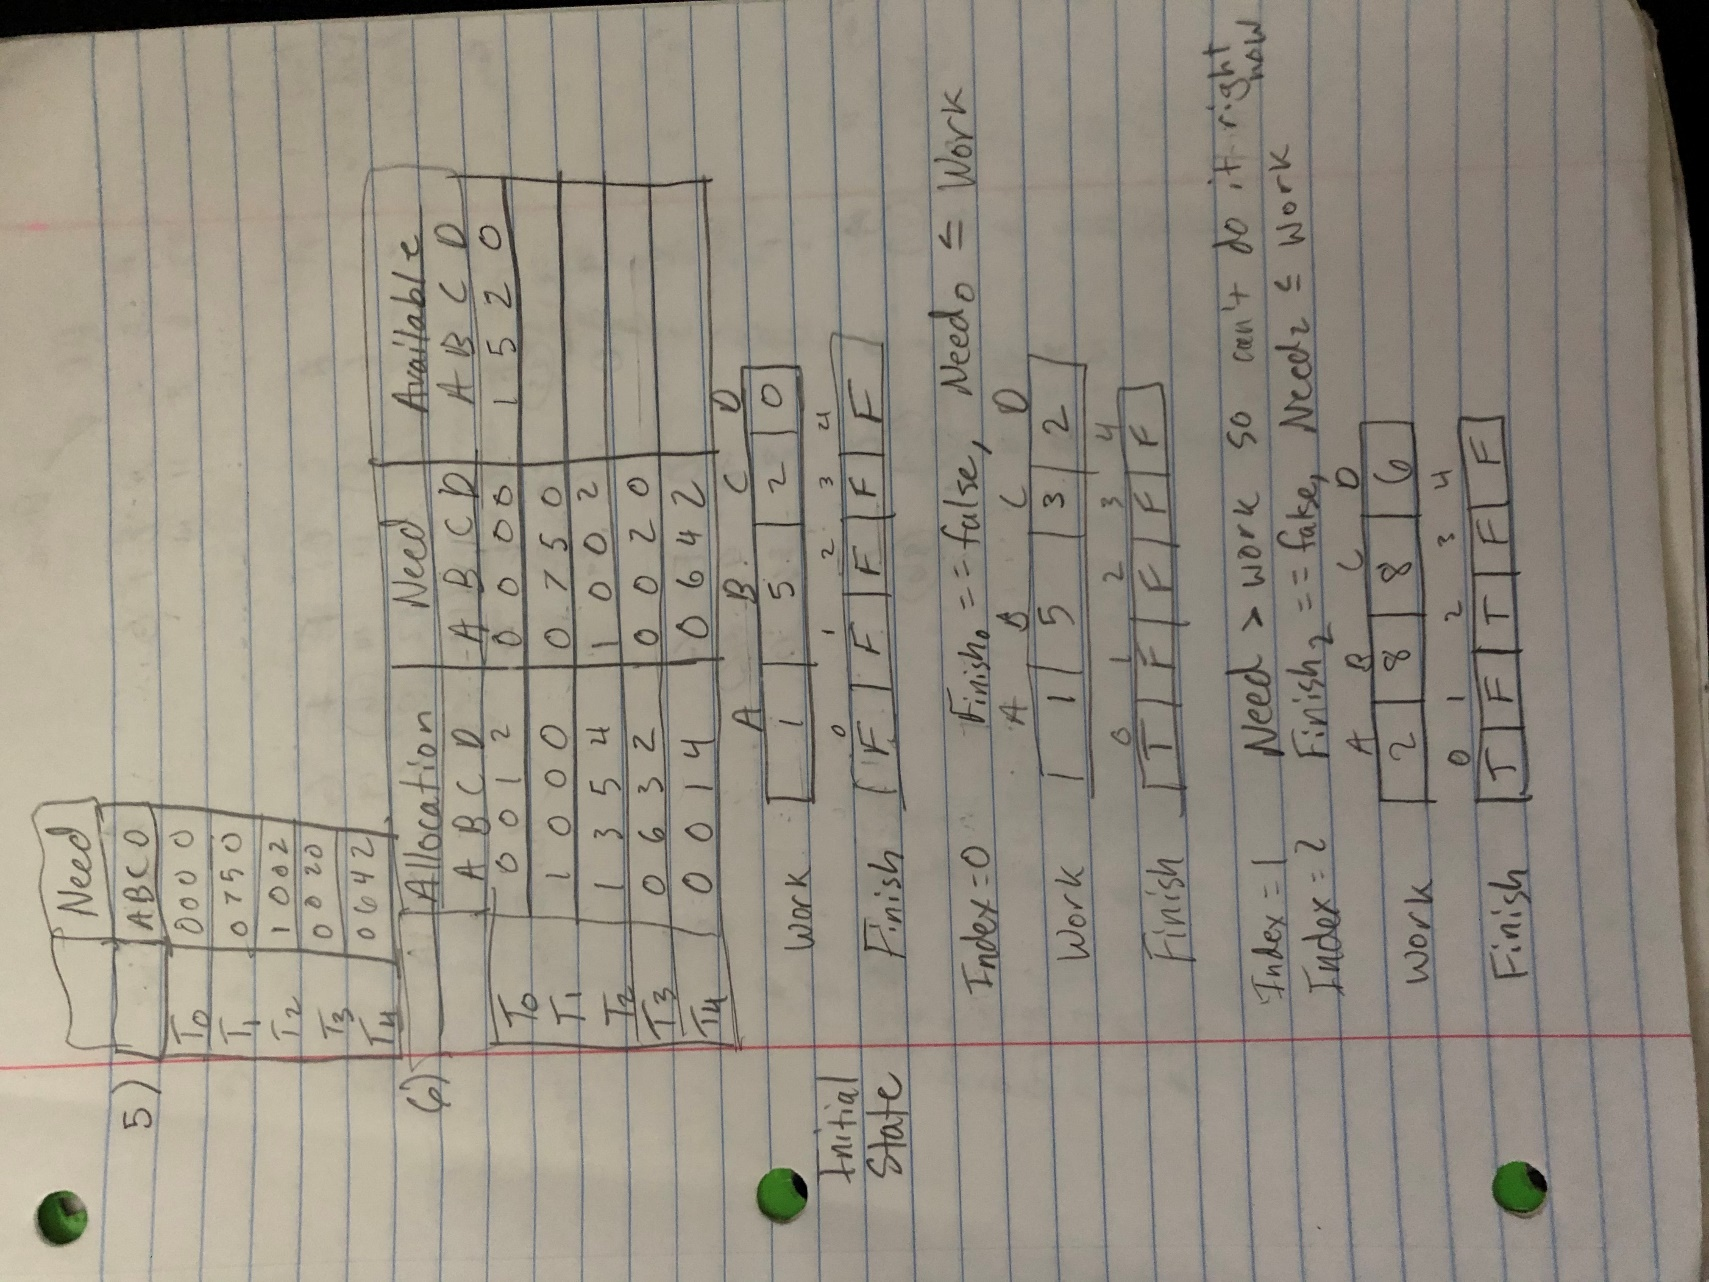 5)
Need
A B C D
T0 0 0 0 0
T1 0 7 5 0
T2 1 0 0 2
T3 0 0 2 0
T4 0 6 4 2
6)
Allocation Need Available
A B C D A B C D A B C D
T0 0 0 1 2 0 0 0 0 1 5 2 0
T1 1 0 0 0 0 7 5 0
T2 1 3 5 4 1 0 0 2
T3 0 6 3 2 0 0 2 0
T4 0 0 1 4 0 6 4 2
Initial State
A B C D
Work 1 5 2 0
0 1 2 3 4
Finish F F F F F
Index=0 Finish0 == false, Need0 ≤ Work
A B C D
Work 1 5 3 2
0 1 2 3 4
Finish T F F F F
Index=1 Need > work so can't do it right now
Index=2 Finish2 == false, Need2 ≤ work
A B C D
Work 2 8 8 6
0 1 2 3 4
Finish T F T F F